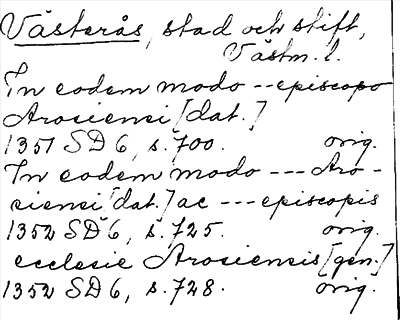 Västerås, stad och stift,
Västm. l.
In eodem modo -- episcopo
Arosiensi [dat.]
1351 SD 6, s. 700. orig.
In eodem modo --- Aro-
siensi [dat.] ac --- episcopis
1352 SD 6, s. 725. orig.
ecclesie Arosiensis [gen.]
1352 SD 6, s. 728. orig.